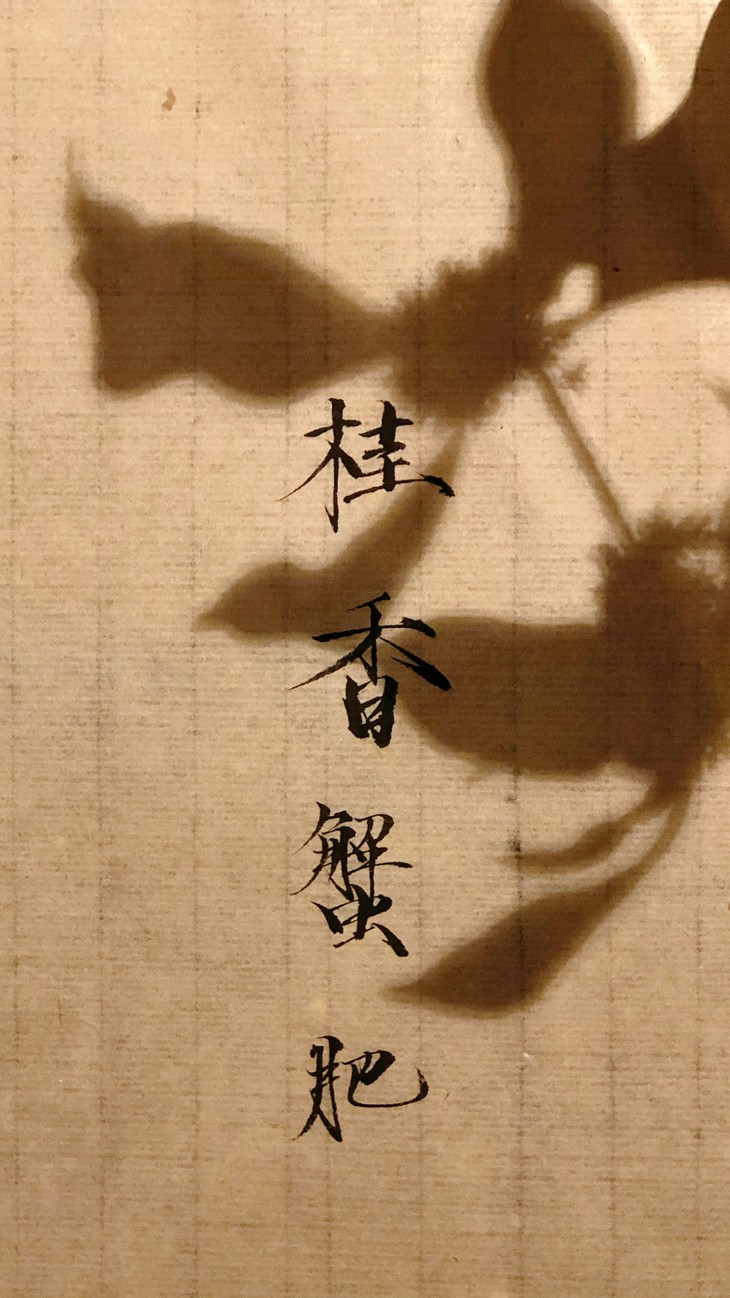 桂香蟹肥